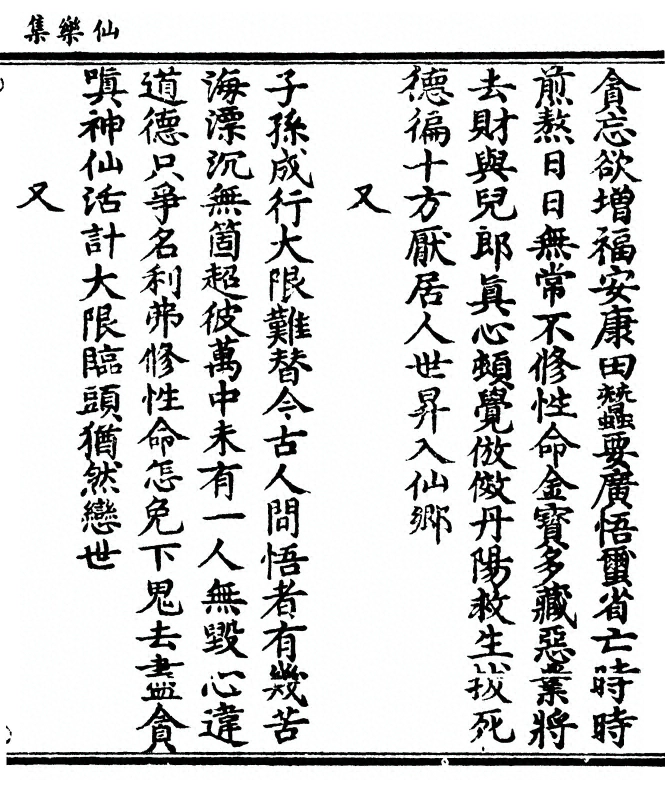 仙樂集
貪忘欲增福安康田蠶要廣悟壐省亡時時
煎熬日日無常不修性命金寶多藏惡業將
去財與兒郎眞心頓覺倣傚丹陽救生拔死
德徧十方厭居人世昇入仙鄉
又
子孫成行大限難替今古人問悟者有幾苦
海漂沉無箇超彼萬中未有一人無毀心違
道德只爭名利弗修性命怎免下鬼去盡貪
嗔神仙活計大限臨頭猶然戀世
又